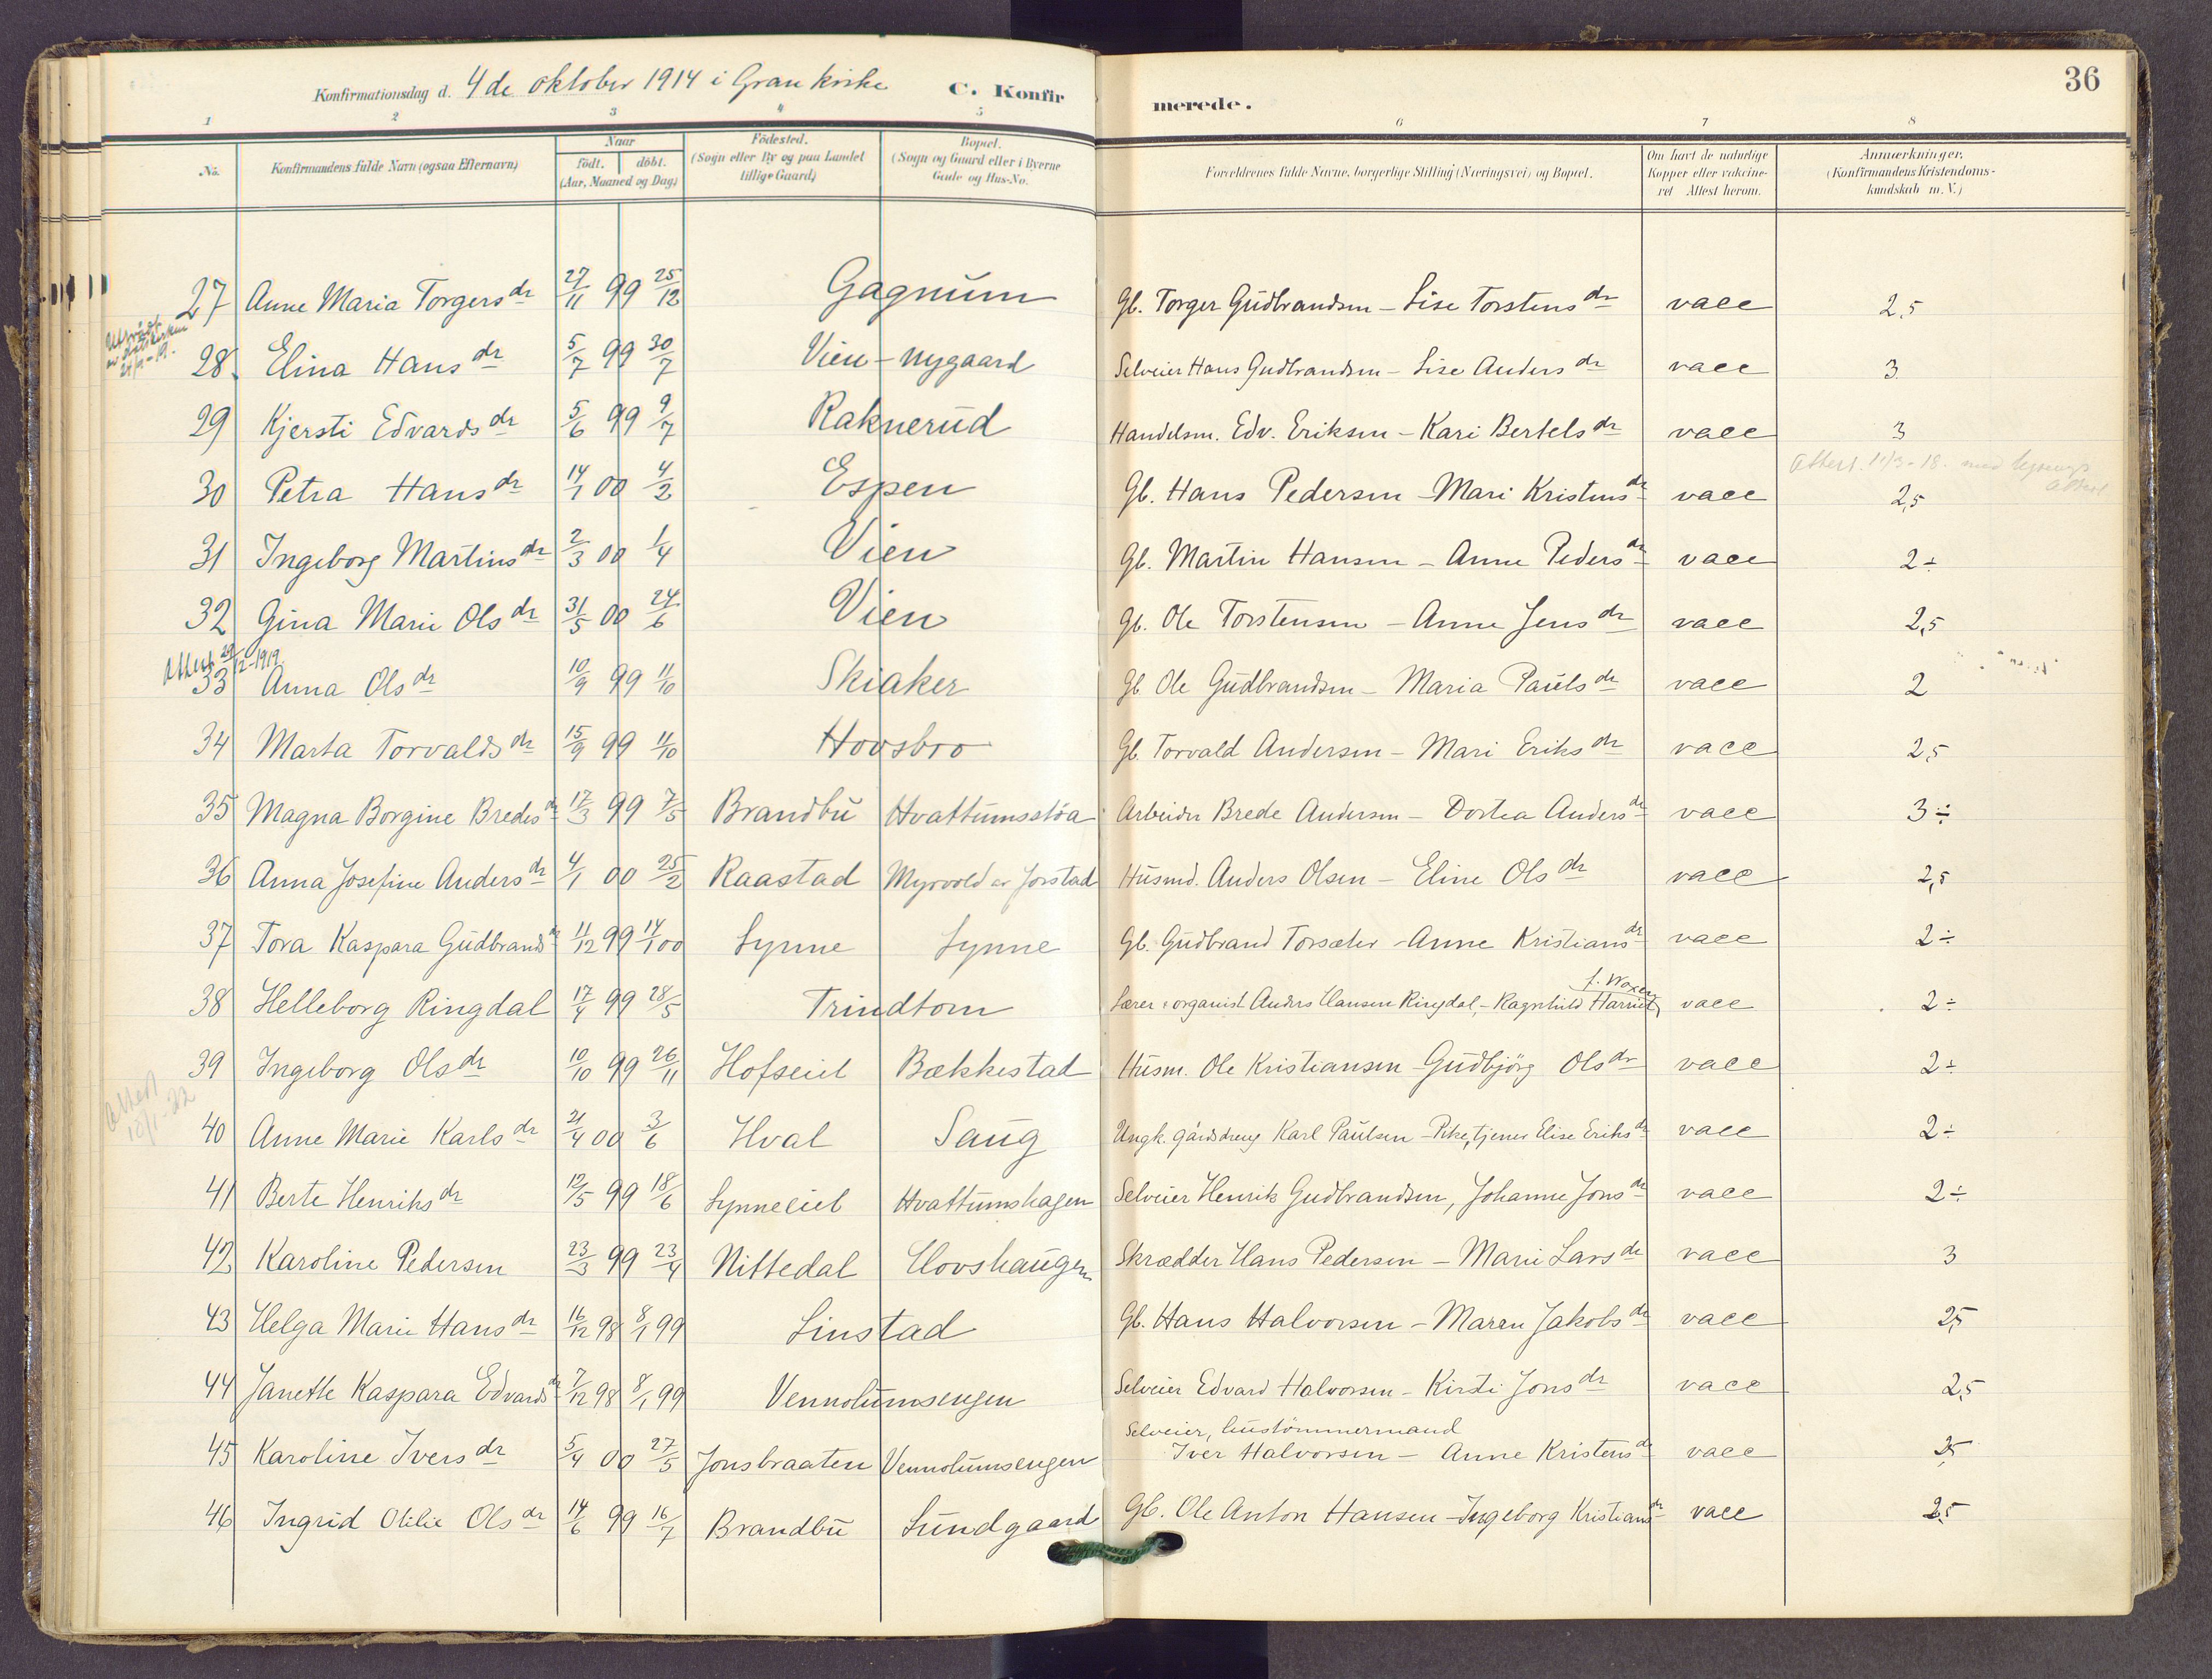 36
Konfirmationsdag d. 4de oktober 1914 i Gran kirke C. Konfir merede.
1 2 3 4 5 6 7 8
No. Konfirmandens fulde Navn (ogsaa Efternavn) Naar födt. döbt. (Aar, Maaned og Dag) Födested. (Sogn eller By og paa Landet tillige Gaard) Bopæl. (Sogn og Gaard eller i Byerne Gade og Hus-No. Forældrenes fulde Navne, borgerlige Stilling (Næringsvei) og Bopæl. Om havt de naturlige Kopper eller vakcineret Attest herom. Anmærkninger. (Konfirmandens Kristendomskundskab m. V.)
27 Anne Maria Torgersdr 27/11 99 25/12 Gagnum Gb. Torger Gudbrandsen - Lise Torstensdr vacc 2,5
Utmeldt av statskirken
28 Elina Hansdr 5/7 99 30/7 Vien - nygaard Selveier Hans Gudbrandsen - Lise Andersdr vacc 3
29 Kjersti Edvardsdr 5/6 99 9/7 Raknerud Handelsm. Edv. Eriksen - Kari Bertelsdr vacc 3
Attest. 11/3-18. med lysnings attest
30 Petra Hansdr 14/1 00 4/2 Espen Gb. Hans Pedersen - Mari Kristensdr vacc 2,5
31 Ingeborg Martinsdr 2/3 00 1/4 Vien Gb. Martin Hansen - Anne Pedersdr vacc 2÷
32 Gina Marie Olsdr 31/5 00 24/6 Vien Gb. Ole Torstensen - Anne Jensdr vacc 2,5
Attest 29/12-1919.
33 Anna Olsdr 10/9 99 11/10 Skiaker Gb Ole Gudbrandsen - Maria Paulsdr vacc 2
34 Marta Torvaldsdr 15/9 99 11/10 Hovsbro Gb. Torvald Andersen - Mari Eriksdr vacc 2,5
35 Magna Borgine Bredesdr 17/3 99 7/5 Brandbu Hvattumsstøa Arbeider Brede Andersen - Dortea Andersdr vacc 3÷
36 Anna Josefine Andersdr 4/1 00 25/2 Raastad Myrvold av Jorstad Husmd. Anders Olsen - Eline Olsdr vacc 2,5
37 Tora Kaspara Gudbrandsdr 11/12 99 14/1 00 Lynne Lynne Gb. Gudbrand Torsæter - Anne Kristiansdr vacc 2÷
38 Helleborg Ringdal 17/4 99 28/5 Trindtom Lærer & organist Anders Hansen Ringdal, - Ragnhild Harriet, vacc 2÷
39 Ingeborg Olsdr 10/10 99 26/11 Hofseiet Bækkestad Husm. Ole Kristiansen Gudbjörg Olsdr vacc 2÷
Attest 18/1-22
40 Anne Marie Karlsdr 21/4 00 3/6 Hval Saug Ungk. gårdsdreng Karl Paulsen - Pike, tjener Elise Eriksdr vacc 2÷
41 Berte Henriksdr 12/5 99 18/6 Lynneeiet Hvattumshagen Selveier Henrik Gudbrandsen, Johanne Jonsdr vacc 2÷
42 Karoline Pedersen 23/3 99 23/4 Nittedal Hovshaugen Skrædder Hans Pedersen - Marie Larsdr vacc 3
43 Helga Marie Hansdr 16/12 98 8/1 99 Linstad Gb. Hans Halvorsen - Maren Jakobsdr vacc 2,5
44 Janette Kaspara Edvardsdr 7/12 98 8/1 99 Vennolumsengen Selveier Edvard Halvorsen - Kirsti Jonsdr vacc 2,5
Selveier, hustömmermand
45 Karoline Iversdr 5/4 00 27/5 Jonsbraaten Vennolumsengen Iver Halvorsen - Anne Kristensdr vacc 2,5
46 Ingrid Otilie Olsdr 14/6 99 16/7 Brandbu Lundgaard Gb. Ole Anton Hansen - Ingeborg Kristiansdr vacc 2,5